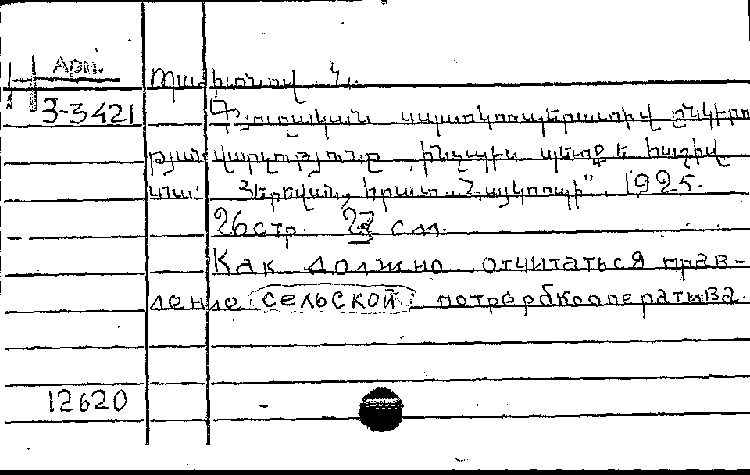 Арм.
Պախտնով Ն.
3-3421
Գյուղական սպառկոոպերատիվ ընկերու
թյան վարչությունը ինչպես պետք է հաշիվ
տա: Յերևան, հրատ. „Հայկոոպի“, 1925.
26 стр. 23 см.
Как должно отчитаться прав-
ление сельской потребкооператива
12620